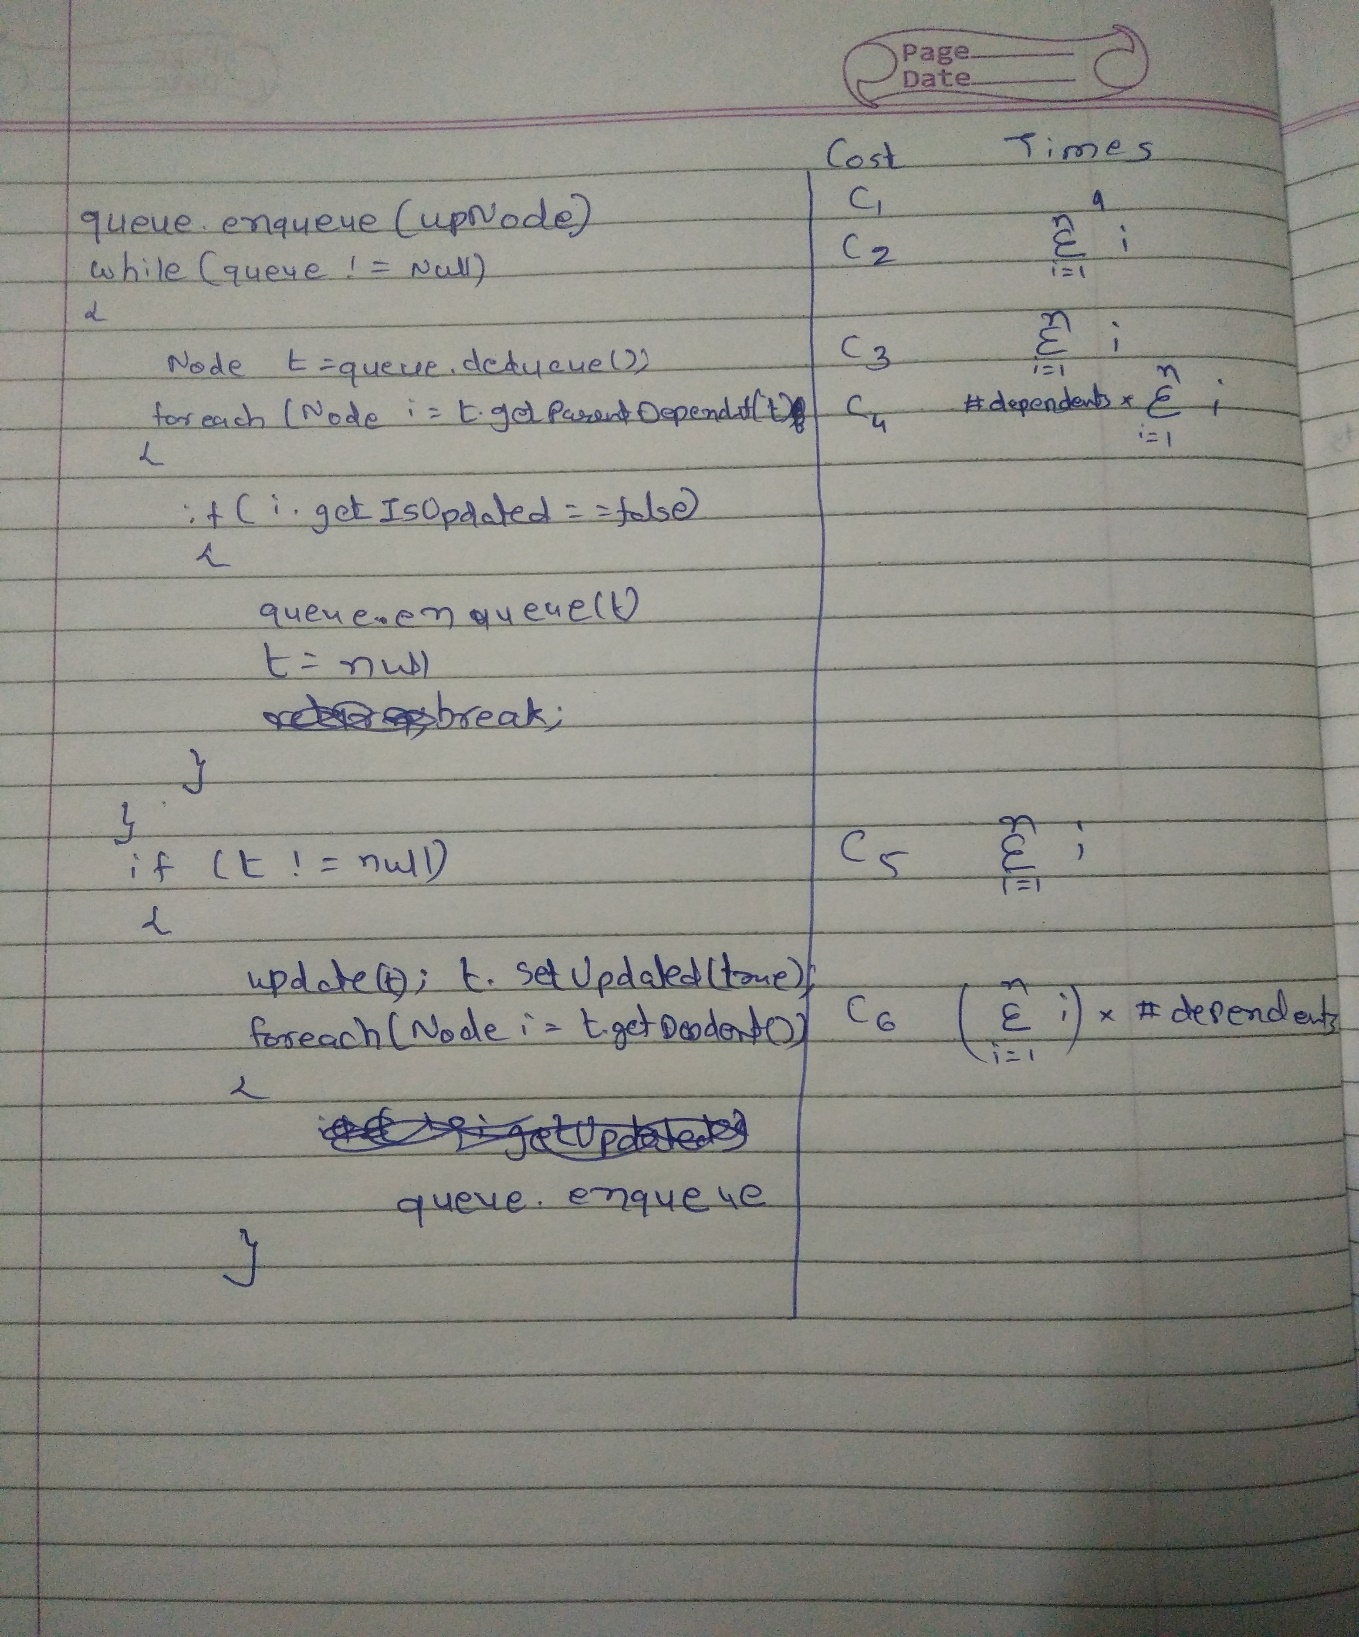 Page
Date
Cost Times
queue.enqueue (upNode) C1 1
while (queue != Null) C2 n Σ i=1 i
{
Node t = queue.dequeue()) C3 n Σ i=1 i
foreach (Node i = t.getParentDependt(t) C4 #dependents * n Σ i=1 i
{
if( i.get IsUpdated == false)
{
queue.enqueue(t)
t = null
break;
}
}
if (t != null) C5 n Σ i=1 i
{
update(t); t.setUpdated(true);
foreach(Node i = t.getDependent()) C6 (n Σ i=1 i) × # dependents
{
queue.enqueue
}